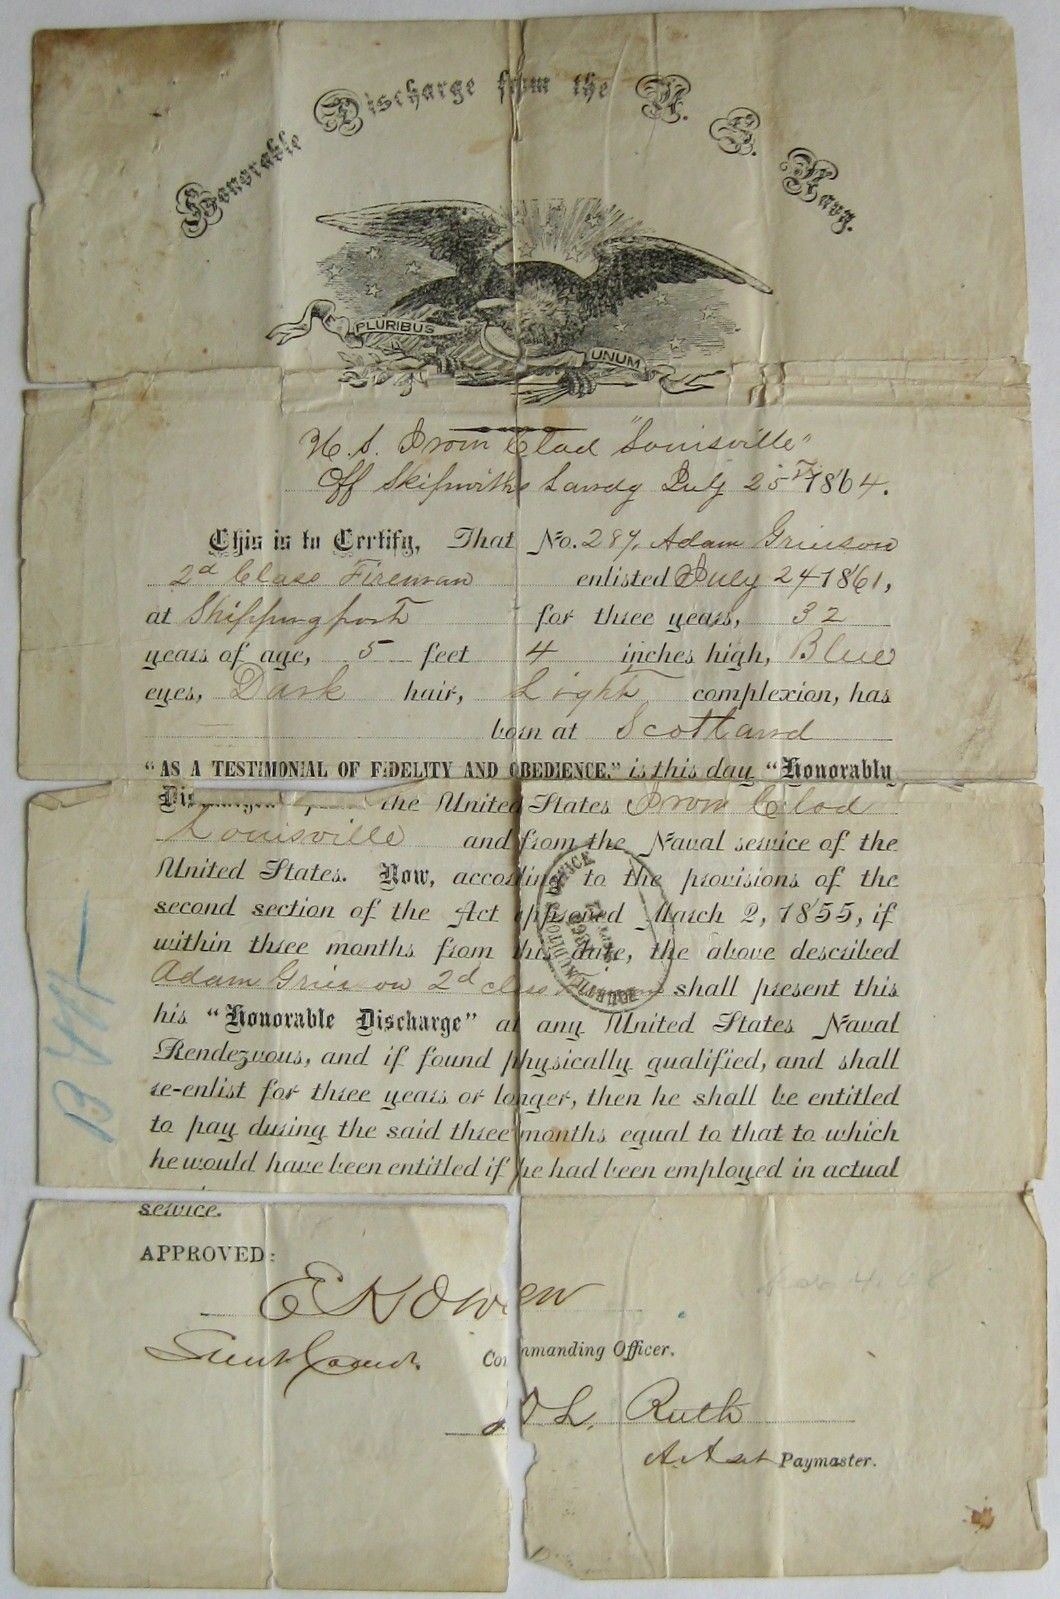 Honorable Discharge from the U. S. Navy.
PLURIBUS
UNUM
U. S. Iron Clad "Louisville"
Off Skipwiths Landg July 25th 1864.
This is to Certify, That No. 287, Adam Grierson
2d Class Fireman enlisted July 24 1861,
at Shippingport for three years, 32
years of age, 5 feet 4 inches high, Blue
eyes, Dark hair, Light complexion, has
born at Scotland
"AS A TESTIMONIAL OF FIDELITY AND OBEDIENCE," is this day "Honorably
the United States Iron Clad
Louisville and from the Naval service of the
United States. Now, according to the provisions of the
second section of the Act approved March 2, 1855, if
within three months from this date, the above described
Adam Grierson 2d class Fireman shall present this
his "Honorable Discharge" at any United States Naval
Rendezvous, and if found physically qualified, and shall
re-enlist for three years or longer, then he shall be entitled
to pay during the said three months equal to that to which
he would have been entitled if he had been employed in actual
service.
APPROVED:
E K Owen
Commanding Officer.
L. Ruth
A. Asst Paymaster.
FOURTH AUDITOR'S OFFICE